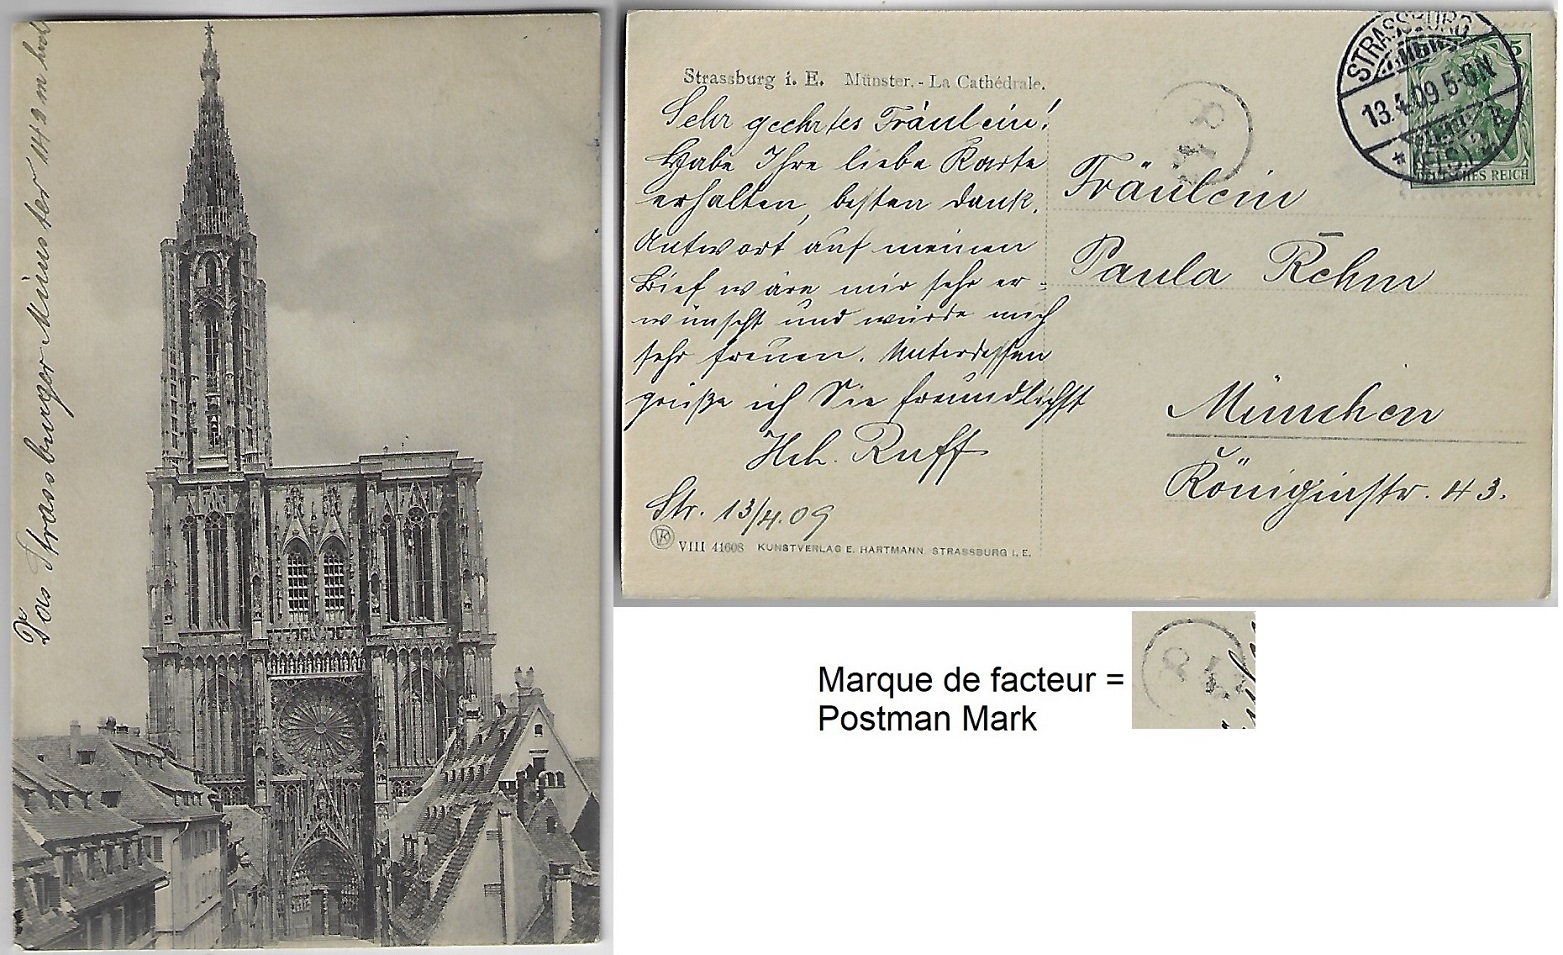 Das Strassburger Münster 142 m hoch
Strassburg i. E. Münster. - La Cathédrale.
Sehr geehrtes Fräulein!
Habe Ihre liebe Karte
erhalten, besten Dank.
Antwort auf meinen
Brief wäre mir sehr er-
wünscht und würde mich
sehr freuen. Unterdessen
grüße ich Sie freundlichst
Hch. Ruff
Str. 13/4.09
VIII 41608 KUNSTVERLAG E. HARTMANN STRASSBURG I. E.
STRASSBURG
13.4.09 5-6N
5
DEUTSCHES REICH
Fräulein
Paula Rehm
München
Königinstr. 43.
Marque de facteur =
Postman Mark